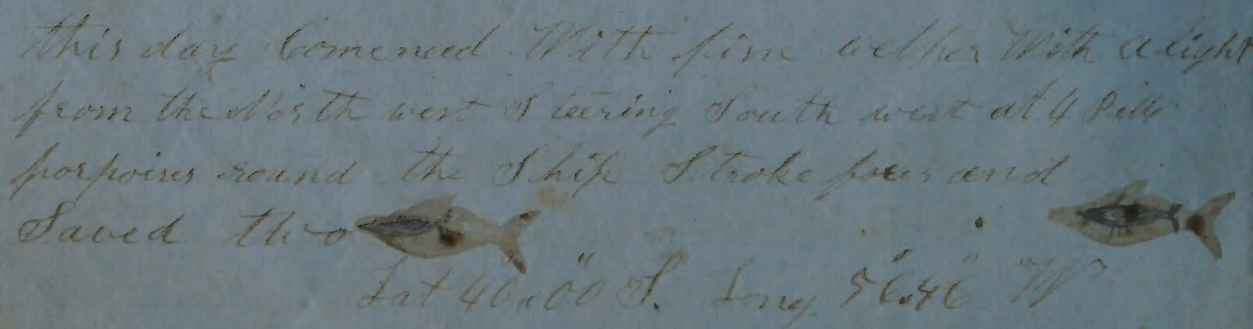 this day Comenced With fine wether With a light
from the North west Steering South west at 4 P M
porpoises round the Ship Stroke four and
Saved two
Lat 40.00 S. Long 56.46 W